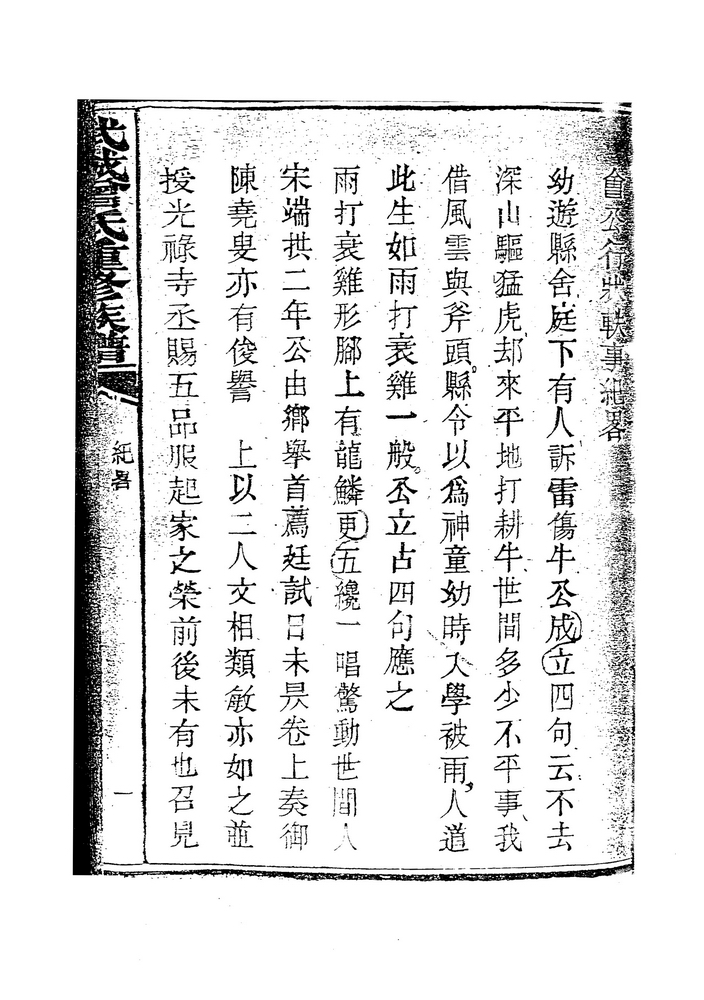 曾公行狀軼事紀畧
幼遊縣舍庭下有人訴雷傷牛公成立四句云不去
深山驅猛虎却來平地打耕牛世間多少不平事我
借風雲與斧頭縣令以爲神童幼時入學被雨人道
此生如雨打衰雞一般公立占四句應之
雨打衰雞形腳上有龍鱗更五纔一唱驚動世間人
宋端拱二年公由鄉舉首薦廷試日未昃卷上奏御
陳堯叟亦有俊譽 上以二人文相類敏亦如之並
授光祿寺丞賜五品服起家之榮前後未有也召見
武城曾氏重修族譜
紀畧
一